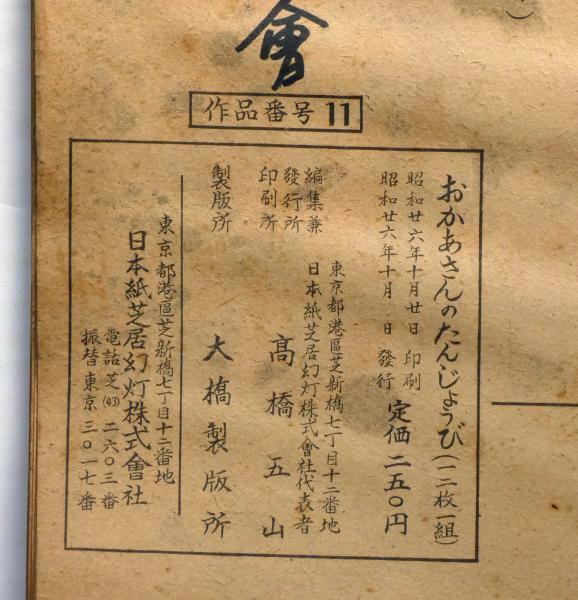 會
作品番号 11
おかあさんのたんじょうび(一二枚一組)
昭和廿六年十月廿日 印刷
昭和廿六年十月 日 發行
定価 二五〇円
東京都港區芝新橋七丁目十二番地
日本紙芝居幻灯株式會社代表者
編集兼
發行所
印刷所
髙橋五山
製版所
大橋製版所
東京都港區芝新橋七丁目十二番地
日本紙芝居幻灯株式會社
電話芝(43)二六〇三番
振替東京三〇一七番